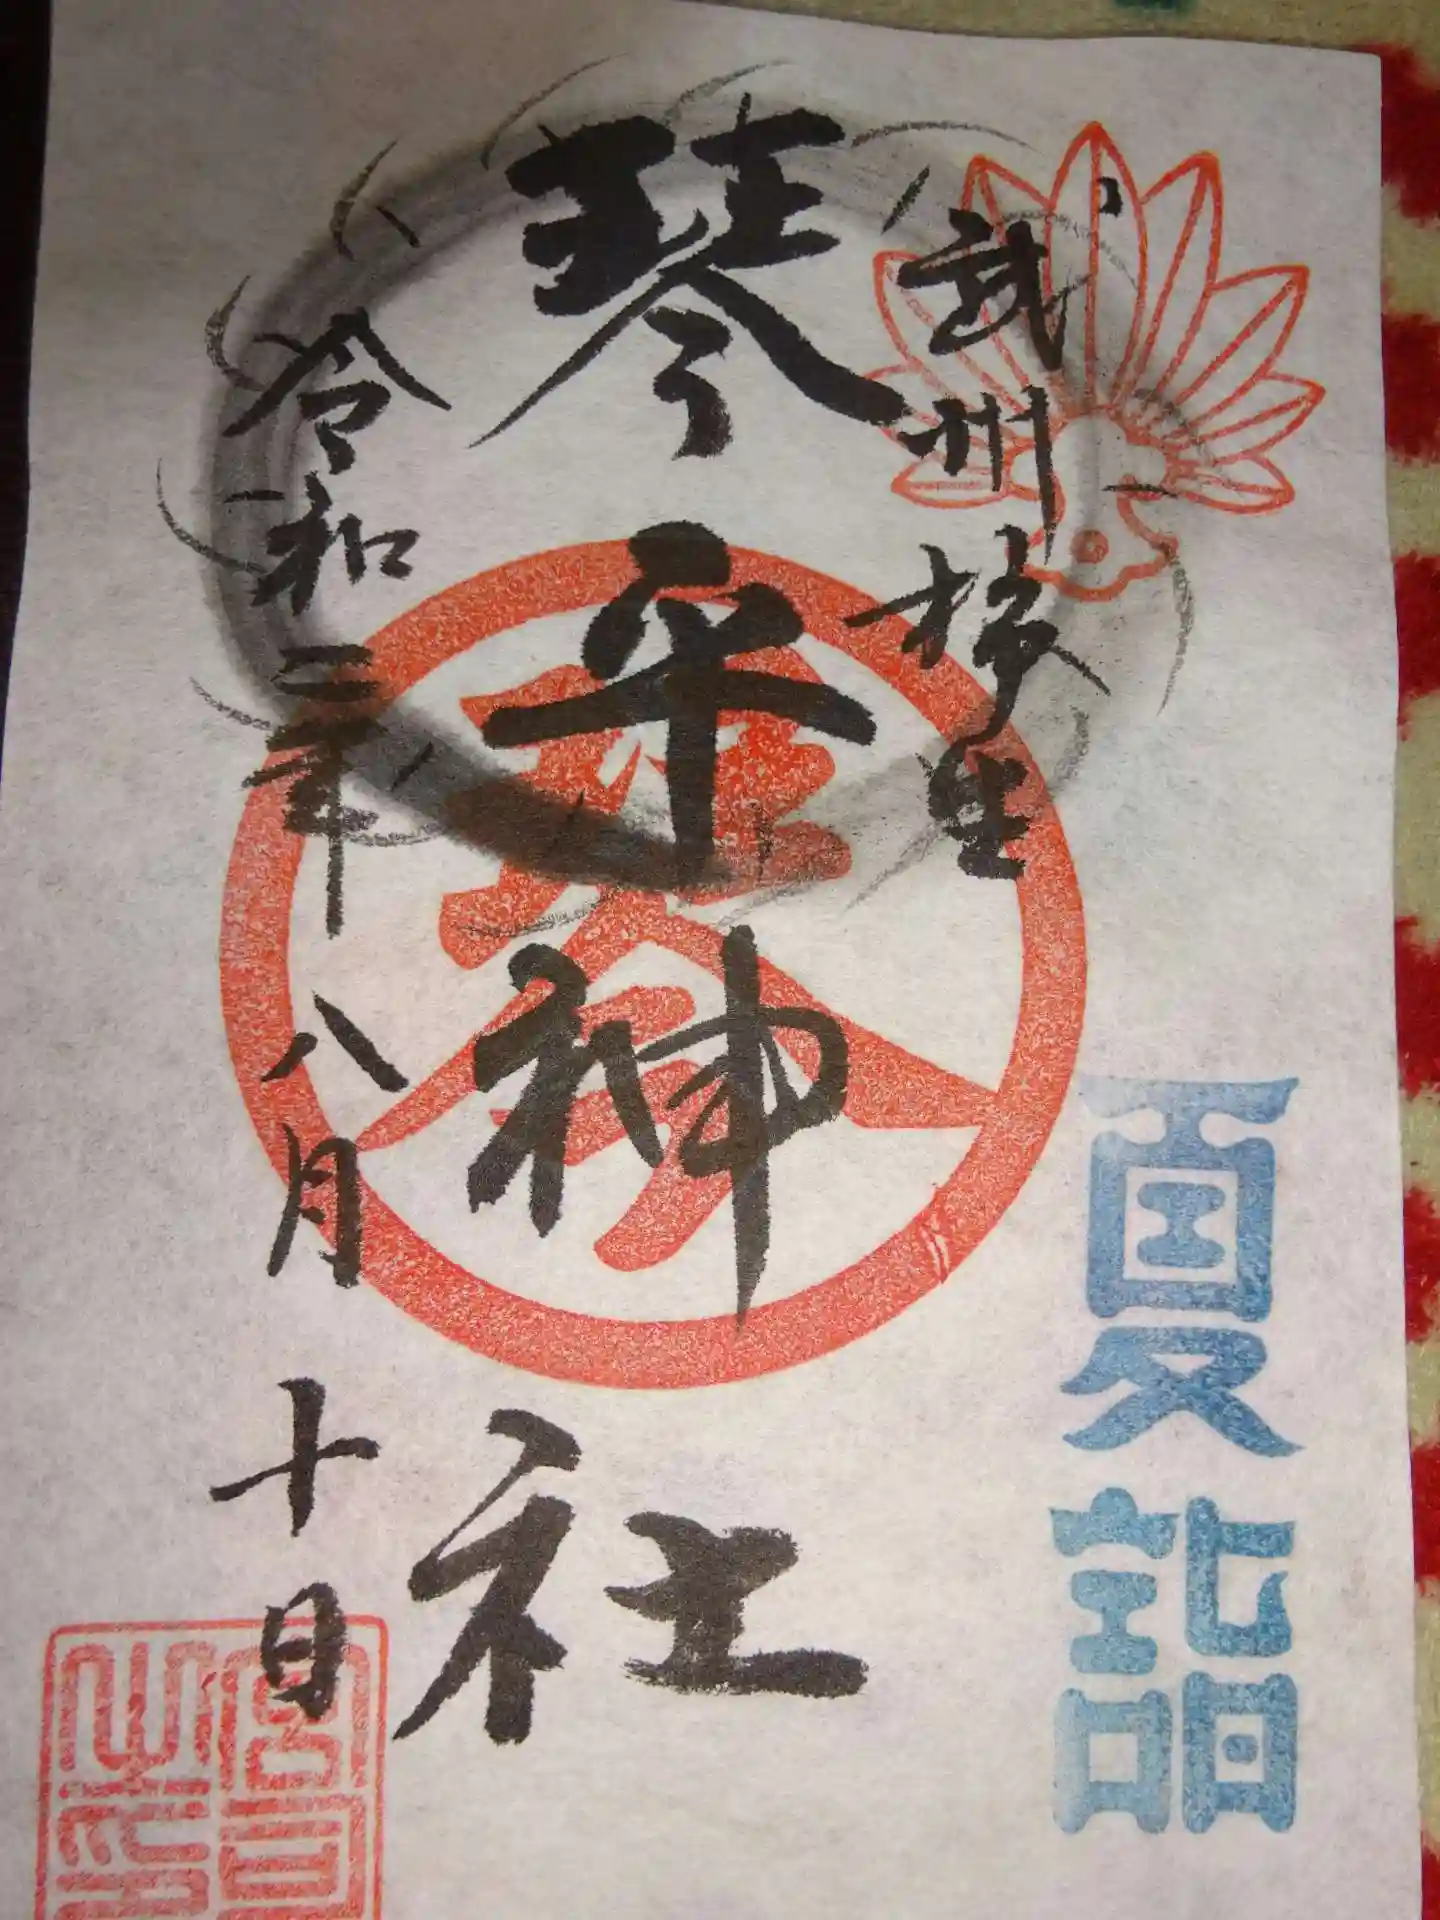 武州柿生
琴平神社
令和二年八月十日
夏詣